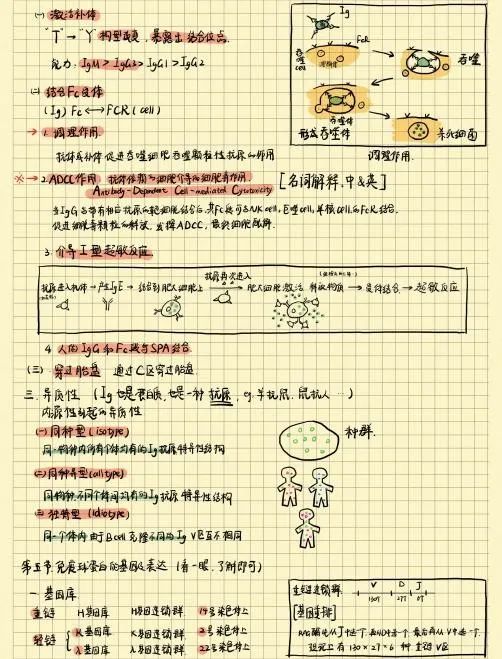 (一) 激活补体
"T" → "Y" 构型改变，暴露出结合位点.
能力: IgM > IgG3 > IgG1 > IgG2
(二) 结合Fc受体
(Ig) Fc ←→ FCR (cell)
→ 1. 调理作用
抗体或补体促进吞噬细胞吞噬颗粒性抗原的作用
Ig
FcR
吞噬cell
吞噬
吞噬体
形成吞噬体
杀死细菌
调理作用.
※→ 2. ADCC作用 抗体依赖的细胞介导的细胞毒作用. [名词解释.中&英]
Antibody-Dependent Cell-mediated Cytotoxicity
当IgG与带有相应抗原的靶细胞结合后，其Fc段可与NK cell, 巨噬cell, 单核cell的FcR结合.
促进细胞毒颗粒的释放，发挥ADCC，最终细胞裂解.
3. 介导I型超敏反应.
抗原再次进入
抗原进入机体 → 产生IgE → 结合到肥大细胞上 → 肥大细胞激活 释放物质 → 受体结合 → 超敏反应
4. 人的IgG的Fc段与SPA结合.
(三) 穿过胎盘 通过C区穿过胎盘.
三. 异质性 (Ig也是蛋白质, 也是一种抗原, eg. 羊抗鼠. 鼠抗人 …)
内源性引起的异质性
(一) 同种型 (isotype)
种群.
同一物种内所有个体均有的Ig抗原特异性结构
(二) 同种异型 (allotype)
同物种.不同个体间均有的Ig抗原特异性结构
(三) 独特型 (idiotype)
同一个体内 由于B cell克隆不同的Ig V区互不相同
第五节 免疫球蛋白的基因及表达 (看一眼，了解即可)
一. 基因库
重链 H基因库 H基因连锁群 14号染色体上
轻链 { K基因库 K基因连锁群 2号染色体上
λ基因库 λ基因连锁群 22号染色体上
重链连锁群. V D J
130个 27个 6个
[基因重排]
理论上有 130×27×6 种 重链V区